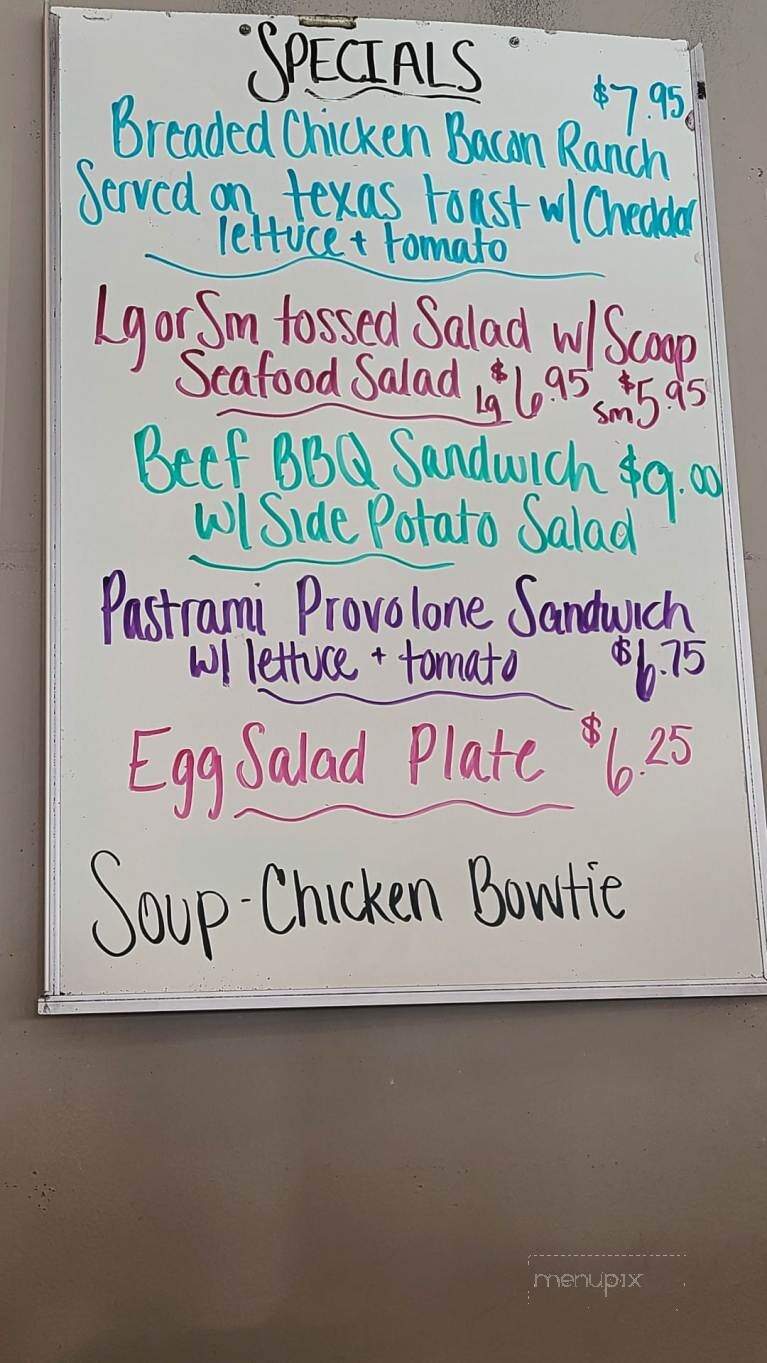 SPECIALS
$7.95
Breaded Chicken Bacon Ranch
Served on texas toast w/ Cheddar
lettuce + tomato
Lg or Sm tossed Salad w/ Scoop
Seafood Salad Lg $6.95 Sm $5.95
Beef BBQ Sandwich $9.00
w/ Side Potato Salad
Pastrami Provolone Sandwich
w/ lettuce + tomato $6.75
Egg Salad Plate $6.25
Soup - Chicken Bowtie
menupix